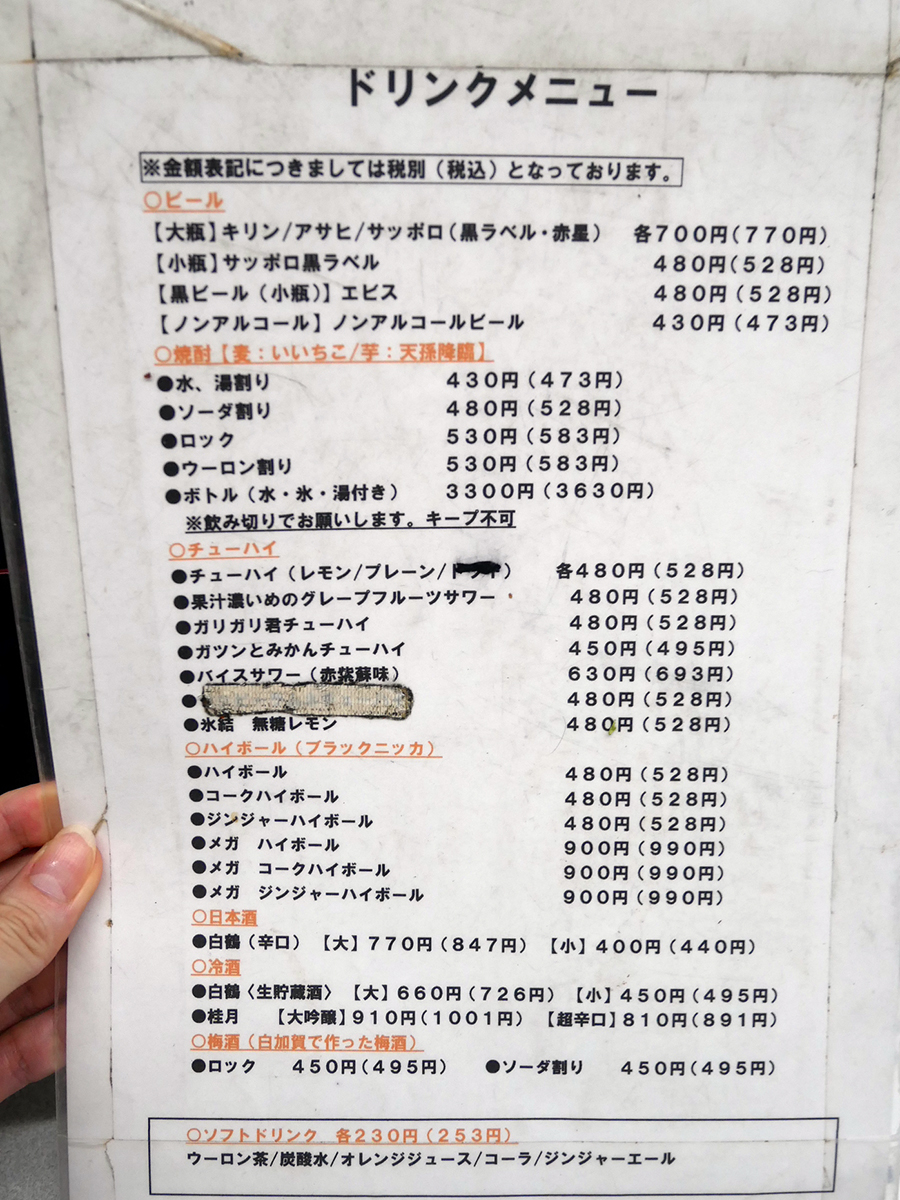 ドリンクメニュー
※金額表記につきましては税別（税込）となっております。
○ビール
【大瓶】キリン/アサヒ/サッポロ（黒ラベル・赤星） 各７００円（７７０円）
【小瓶】サッポロ黒ラベル ４８０円（５２８円）
【黒ビール（小瓶）】エビス ４８０円（５２８円）
【ノンアルコール】ノンアルコールビール ４３０円（４７３円）
○焼酎【麦：いいちこ/芋：天孫降臨】
●水、湯割り ４３０円（４７３円）
●ソーダ割り ４８０円（５２８円）
●ロック ５３０円（５８３円）
●ウーロン割り ５３０円（５８３円）
●ボトル（水・氷・湯付き） ３３００円（３６３０円）
※飲み切りでお願いします。キープ不可
○チューハイ
●チューハイ（レモン/プレーン/） 各４８０円（５２８円）
●果汁濃いめのグレープフルーツサワー ４８０円（５２８円）
●ガリガリ君チューハイ ４８０円（５２８円）
●ガツンとみかんチューハイ ４５０円（４９５円）
●バイスサワー（赤紫蘇味） ６３０円（６９３円）
● ４８０円（５２８円）
●氷結　無糖レモン ４８０円（５２８円）
○ハイボール（ブラックニッカ）
●ハイボール ４８０円（５２８円）
●コークハイボール ４８０円（５２８円）
●ジンジャーハイボール ４８０円（５２８円）
●メガ　ハイボール ９００円（９９０円）
●メガ　コークハイボール ９００円（９９０円）
●メガ　ジンジャーハイボール ９００円（９９０円）
○日本酒
●白鶴（辛口） 【大】７７０円（８４７円） 【小】４００円（４４０円）
○冷酒
●白鶴〈生貯蔵酒〉 【大】６６０円（７２６円） 【小】４５０円（４９５円）
●桂月 【大吟醸】９１０円（１００１円） 【超辛口】８１０円（８９１円）
○梅酒（白加賀で作った梅酒）
●ロック ４５０円（４９５円） ●ソーダ割り ４５０円（４９５円）
○ソフトドリンク　各２３０円（２５３円）
ウーロン茶/炭酸水/オレンジジュース/コーラ/ジンジャーエール